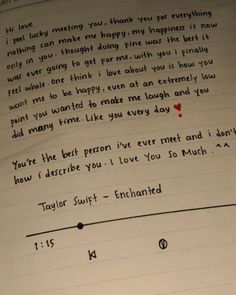 Hi love
i feel lucky meeting you, thank you for everything
nothing can make me happy, my happiness is now
only in you. thought doing fine was the best it
was ever going to get for me. with you i finally
feel whole. One think i love about you is how you
want me to be happy, even at an extremely low
point you wanted to make me laugh and you
did many time. Like you every day ❣
You're the best person i've ever meet and i don't
how i describe you. I Love You So Much. ^^
Taylor Swift - Enchanted
1:15